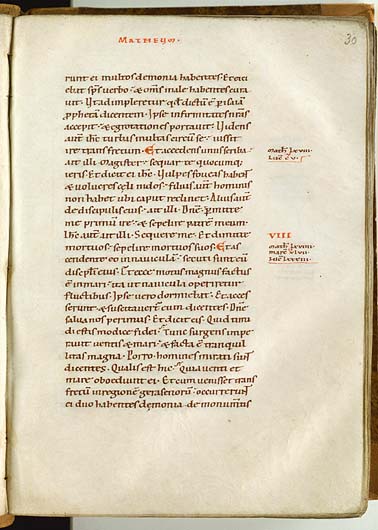 MATHEUM·
30
runt ei multos demonia habentes. Et eici
ebat sp̄s verbo· & om̄s male habentes cura
vit. Ut adimpleretur qđ dictū ē p isaiā
pphetā dicentem. Ipse infirmitates n̄ras
accepit· & egrotationes portavit. Videns
autē ih̄c turbas multas circū se· iussit
ire trans fretum. Et accedens unus scriba·
ait illi. Magister· sequar te quocumq;
ieris. Et dicit ei ih̄c. Vulpes foveas habent
& volucres cęli nidos· filius autē hominis
non habet ubi caput reclinet. Alius autē
de discipulis eius· ait illi. Dn̄e pmitte
me primū ire· & sepelire patrē meum.
Ih̄c autē ait illi. Sequere me. Et dimitte
mortuos· sepelire mortuos suos. Et as
cendente eo in navicula· secuti sunt eū
discipli eius. Et ecce motus magnus factus
ē in mari· ita ut navicula operiretur
fluctibus. Ipse vero dormiebat. Et acces
serunt & suscitaverūt eum dicentes. Dn̄e
salva nos perimus. Et dicit eis. Quid timi
di estis modice fidei. Tunc surgens impe
ravit ventis & mari· & facta ē tranquil
litas magna. Porro homines mirati sunt
dicentes. Qualis est hic· quia venti et
mare oboediunt ei. Et cum venisset trans
fretū in regionē gerasenorū· occurrerunt
ei duo habentes demonia· de monumētis
VIII